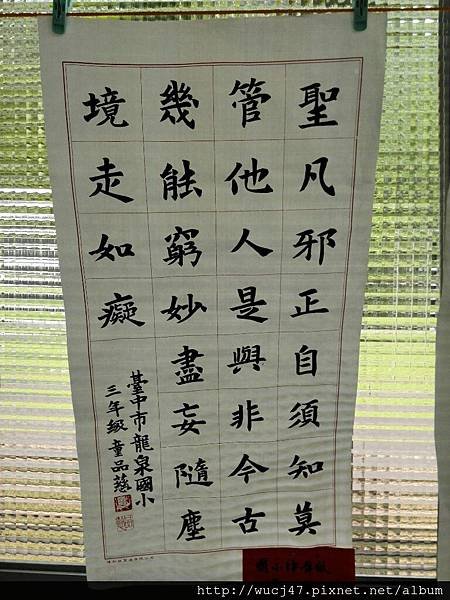 聖凡邪正自須知莫
管他人是與非今古
幾能窮妙盡妄隨塵
境走如癡
臺中市龍泉國小
三年級童品慈
http://wucj47.pixnet.net/album